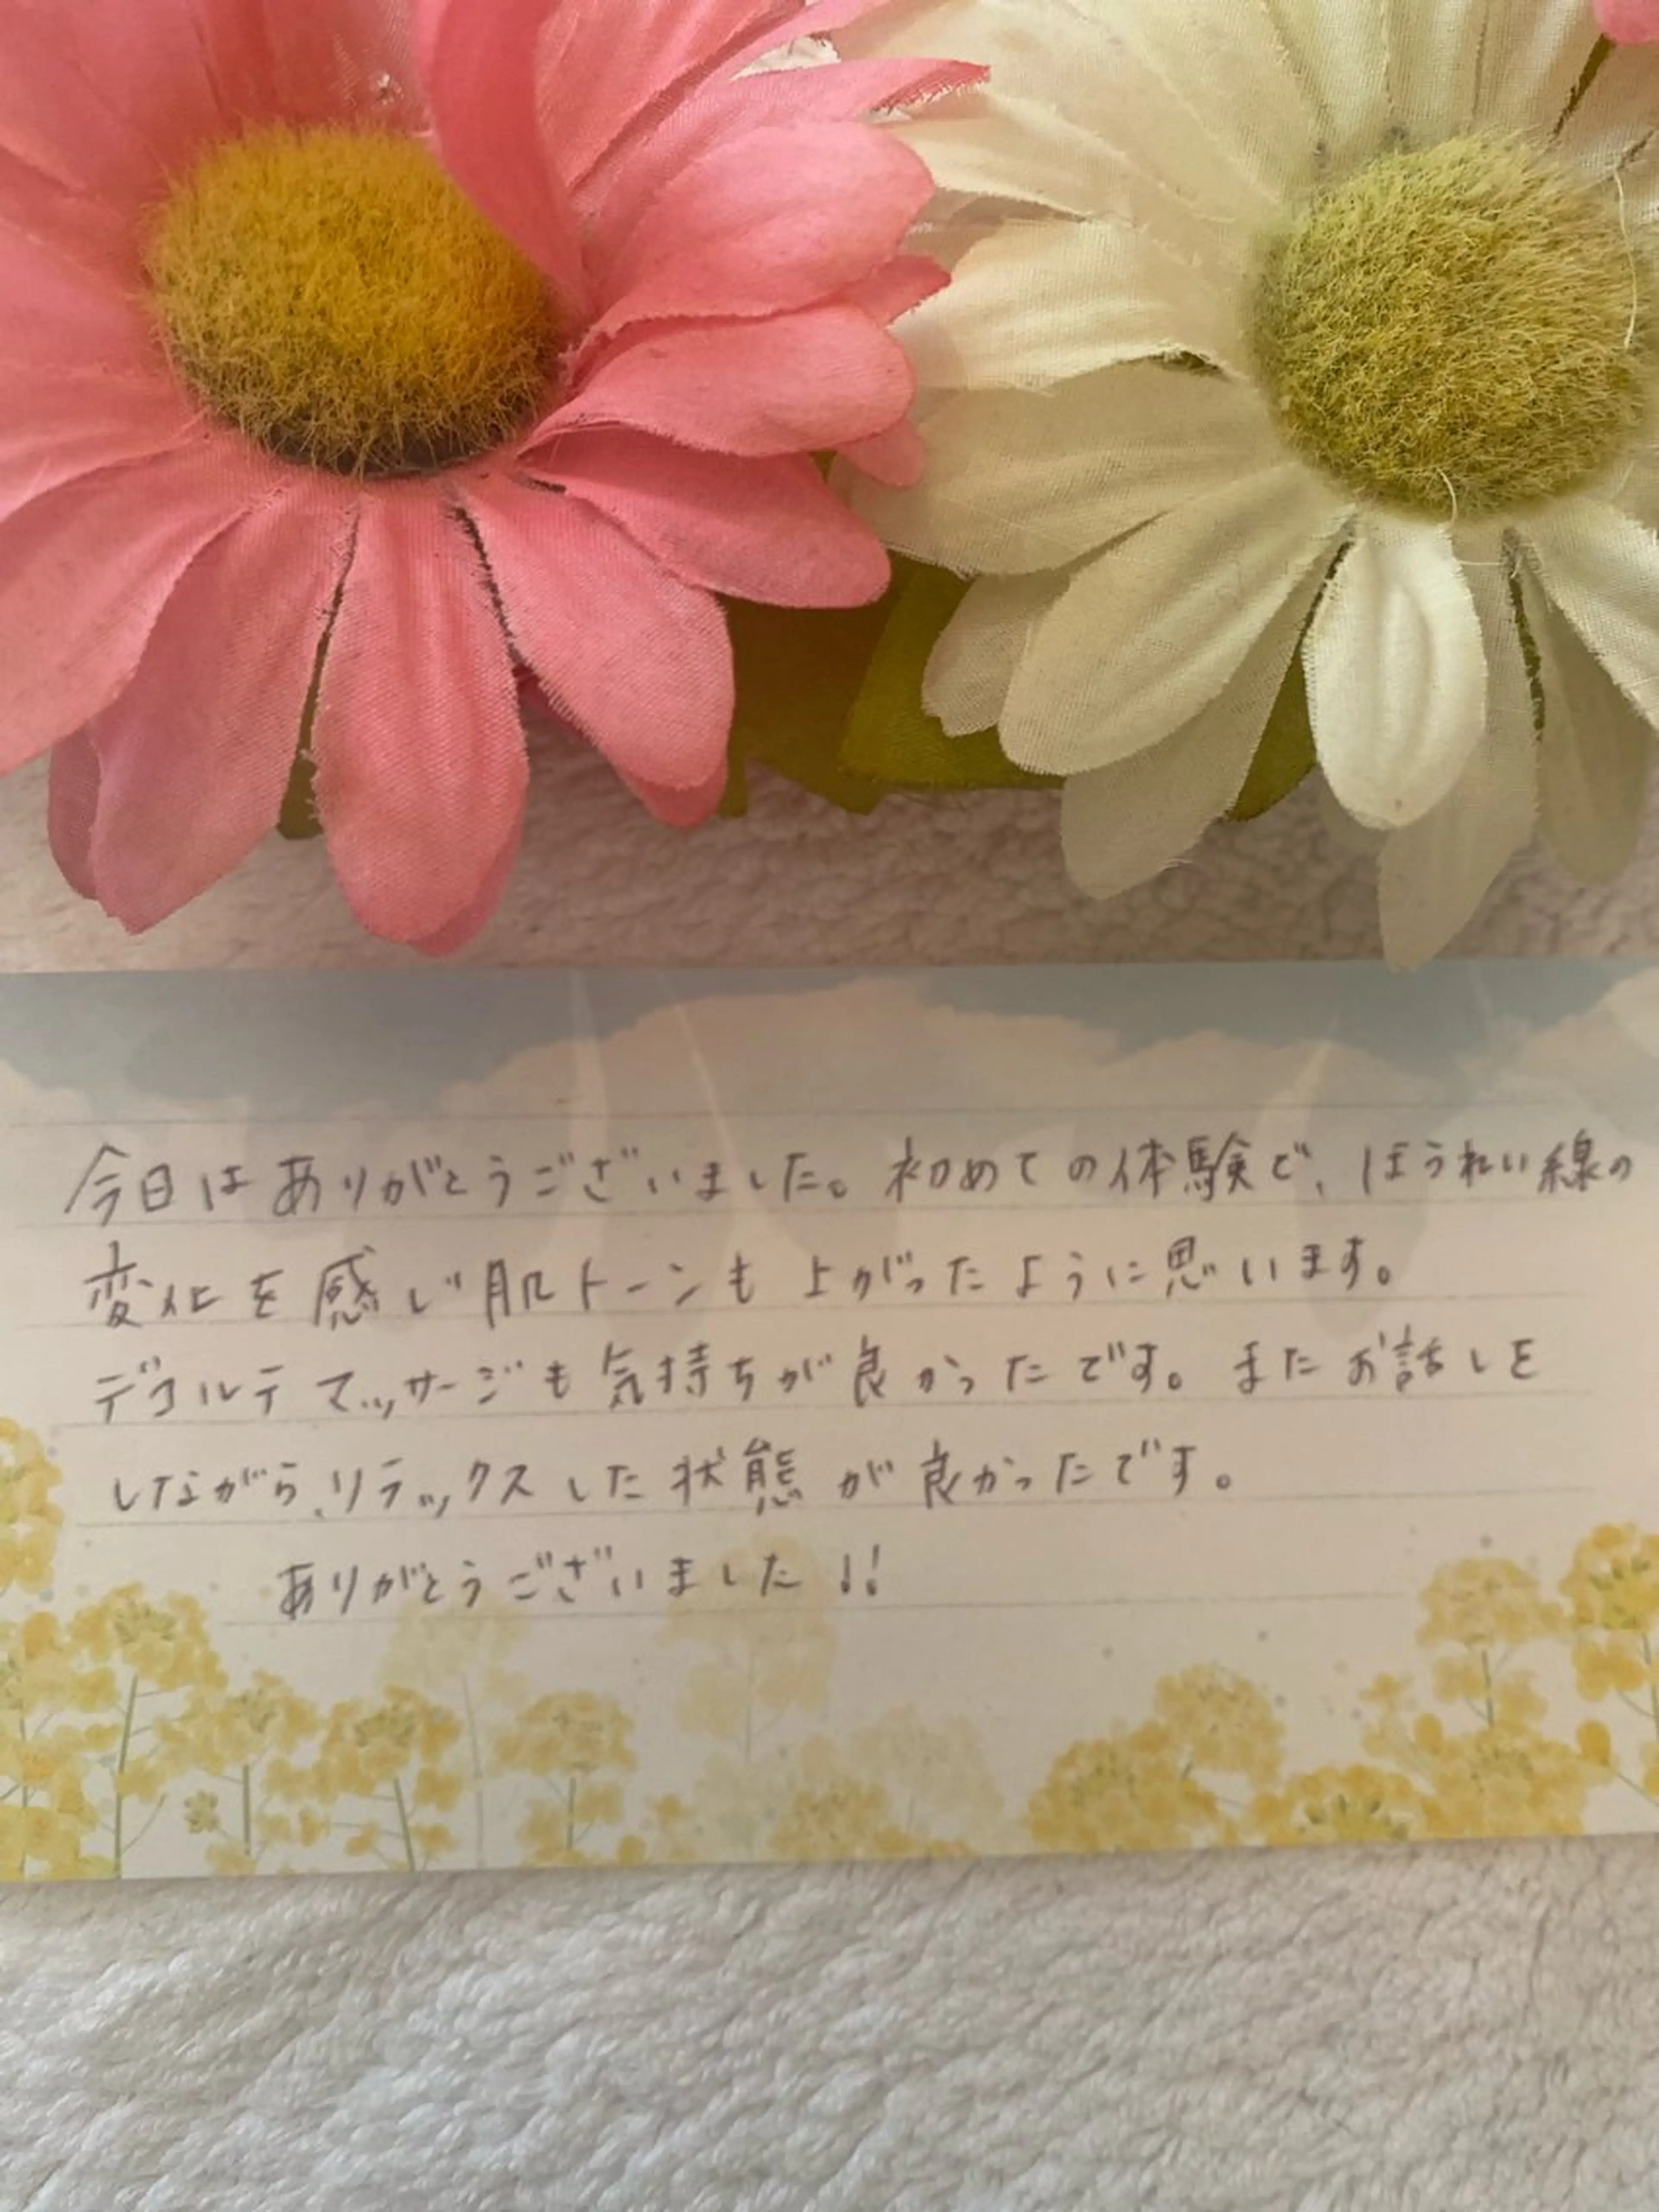 今日はありがとうございました。初めての体験で、ほうれい線の
変化を感じ肌トーンも上がったように思います。
デコルテマッサージも気持ちが良かったです。またお話しを
しながら、リラックスした状態が良かったです。
ありがとうございました!!